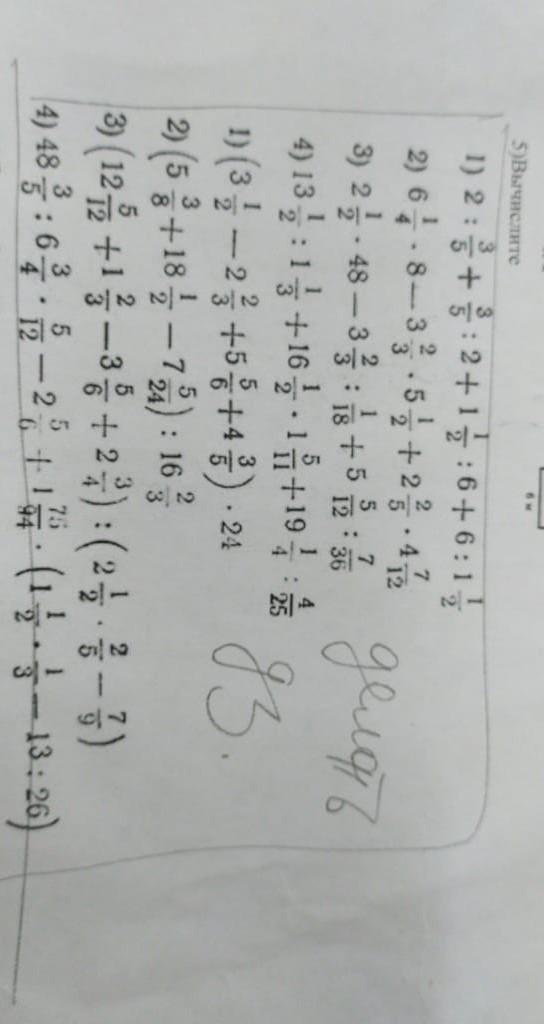 5)Вычислите
1) 2 : 3/5 + 3/5 : 2 + 1 1/2 : 6 + 6 : 1 1/2
2) 6 1/4 · 8 — 3 2/3 · 5 1/2 + 2 2/5 · 4 7/12
3) 2 1/2 · 48 — 3 2/3 : 1/18 + 5 5/12 : 7/36
4) 13 1/2 : 1 1/3 + 16 1/2 · 1 5/11 + 19 1/4 : 4/25
1) (3 1/2 — 2 2/3 + 5 5/6 + 4 3/5) · 24
2) (5 3/8 + 18 1/2 — 7 5/24) : 16 2/3
3) (12 5/12 + 1 2/3 — 3 5/6 + 2 3/4) : (2 1/2 · 2/5 — 7/9)
4) 48 3/5 : 6 3/4 · 5/12 — 2 5/6 + 1 75/94 · (1 1/2 · 1/3 — 13 : 26)
делать
дз.
6 м